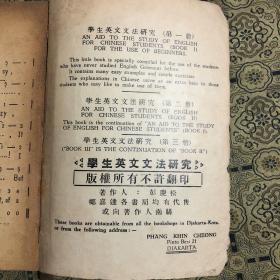 學生英文文法研究（第一冊）
AN AID TO THE STUDY OF ENGLISH
FOR CHINESE STUDENTS (BOOK I)
FOR THE USE OF BEGINNERS.
This little book is specially essential for the use of the students
who have never studied English Grammar before.
It contains many easy examples and simple exercises.
The explanations in Chinese serve as an extra basis to those
students who may like to make use of them.
學生英文文法研究（第二冊）
AN AID TO THE STUDY OF ENGLISH
FOR CHINESE STUDENTS (BOOK II)
This book is the continuation of "AN AID TO THE STUDY
OF ENGLISH FOR CHINESE STUDENTS (BOOK I)".
學生英文文法研究（第三冊）
("BOOK III" IS THE CONTINUATION OF "BOOK II")
學生英文文法研究
版權所有不許翻印
著作人：彭慶松
椰嘉達各書局均有代售
或向著作人函購
These books are obtainable from all the bookshops in Djakarta-Kota,
or from the following address:
PHANG KHIN CHEONG
Pintu Besi 21
DJAKARTA